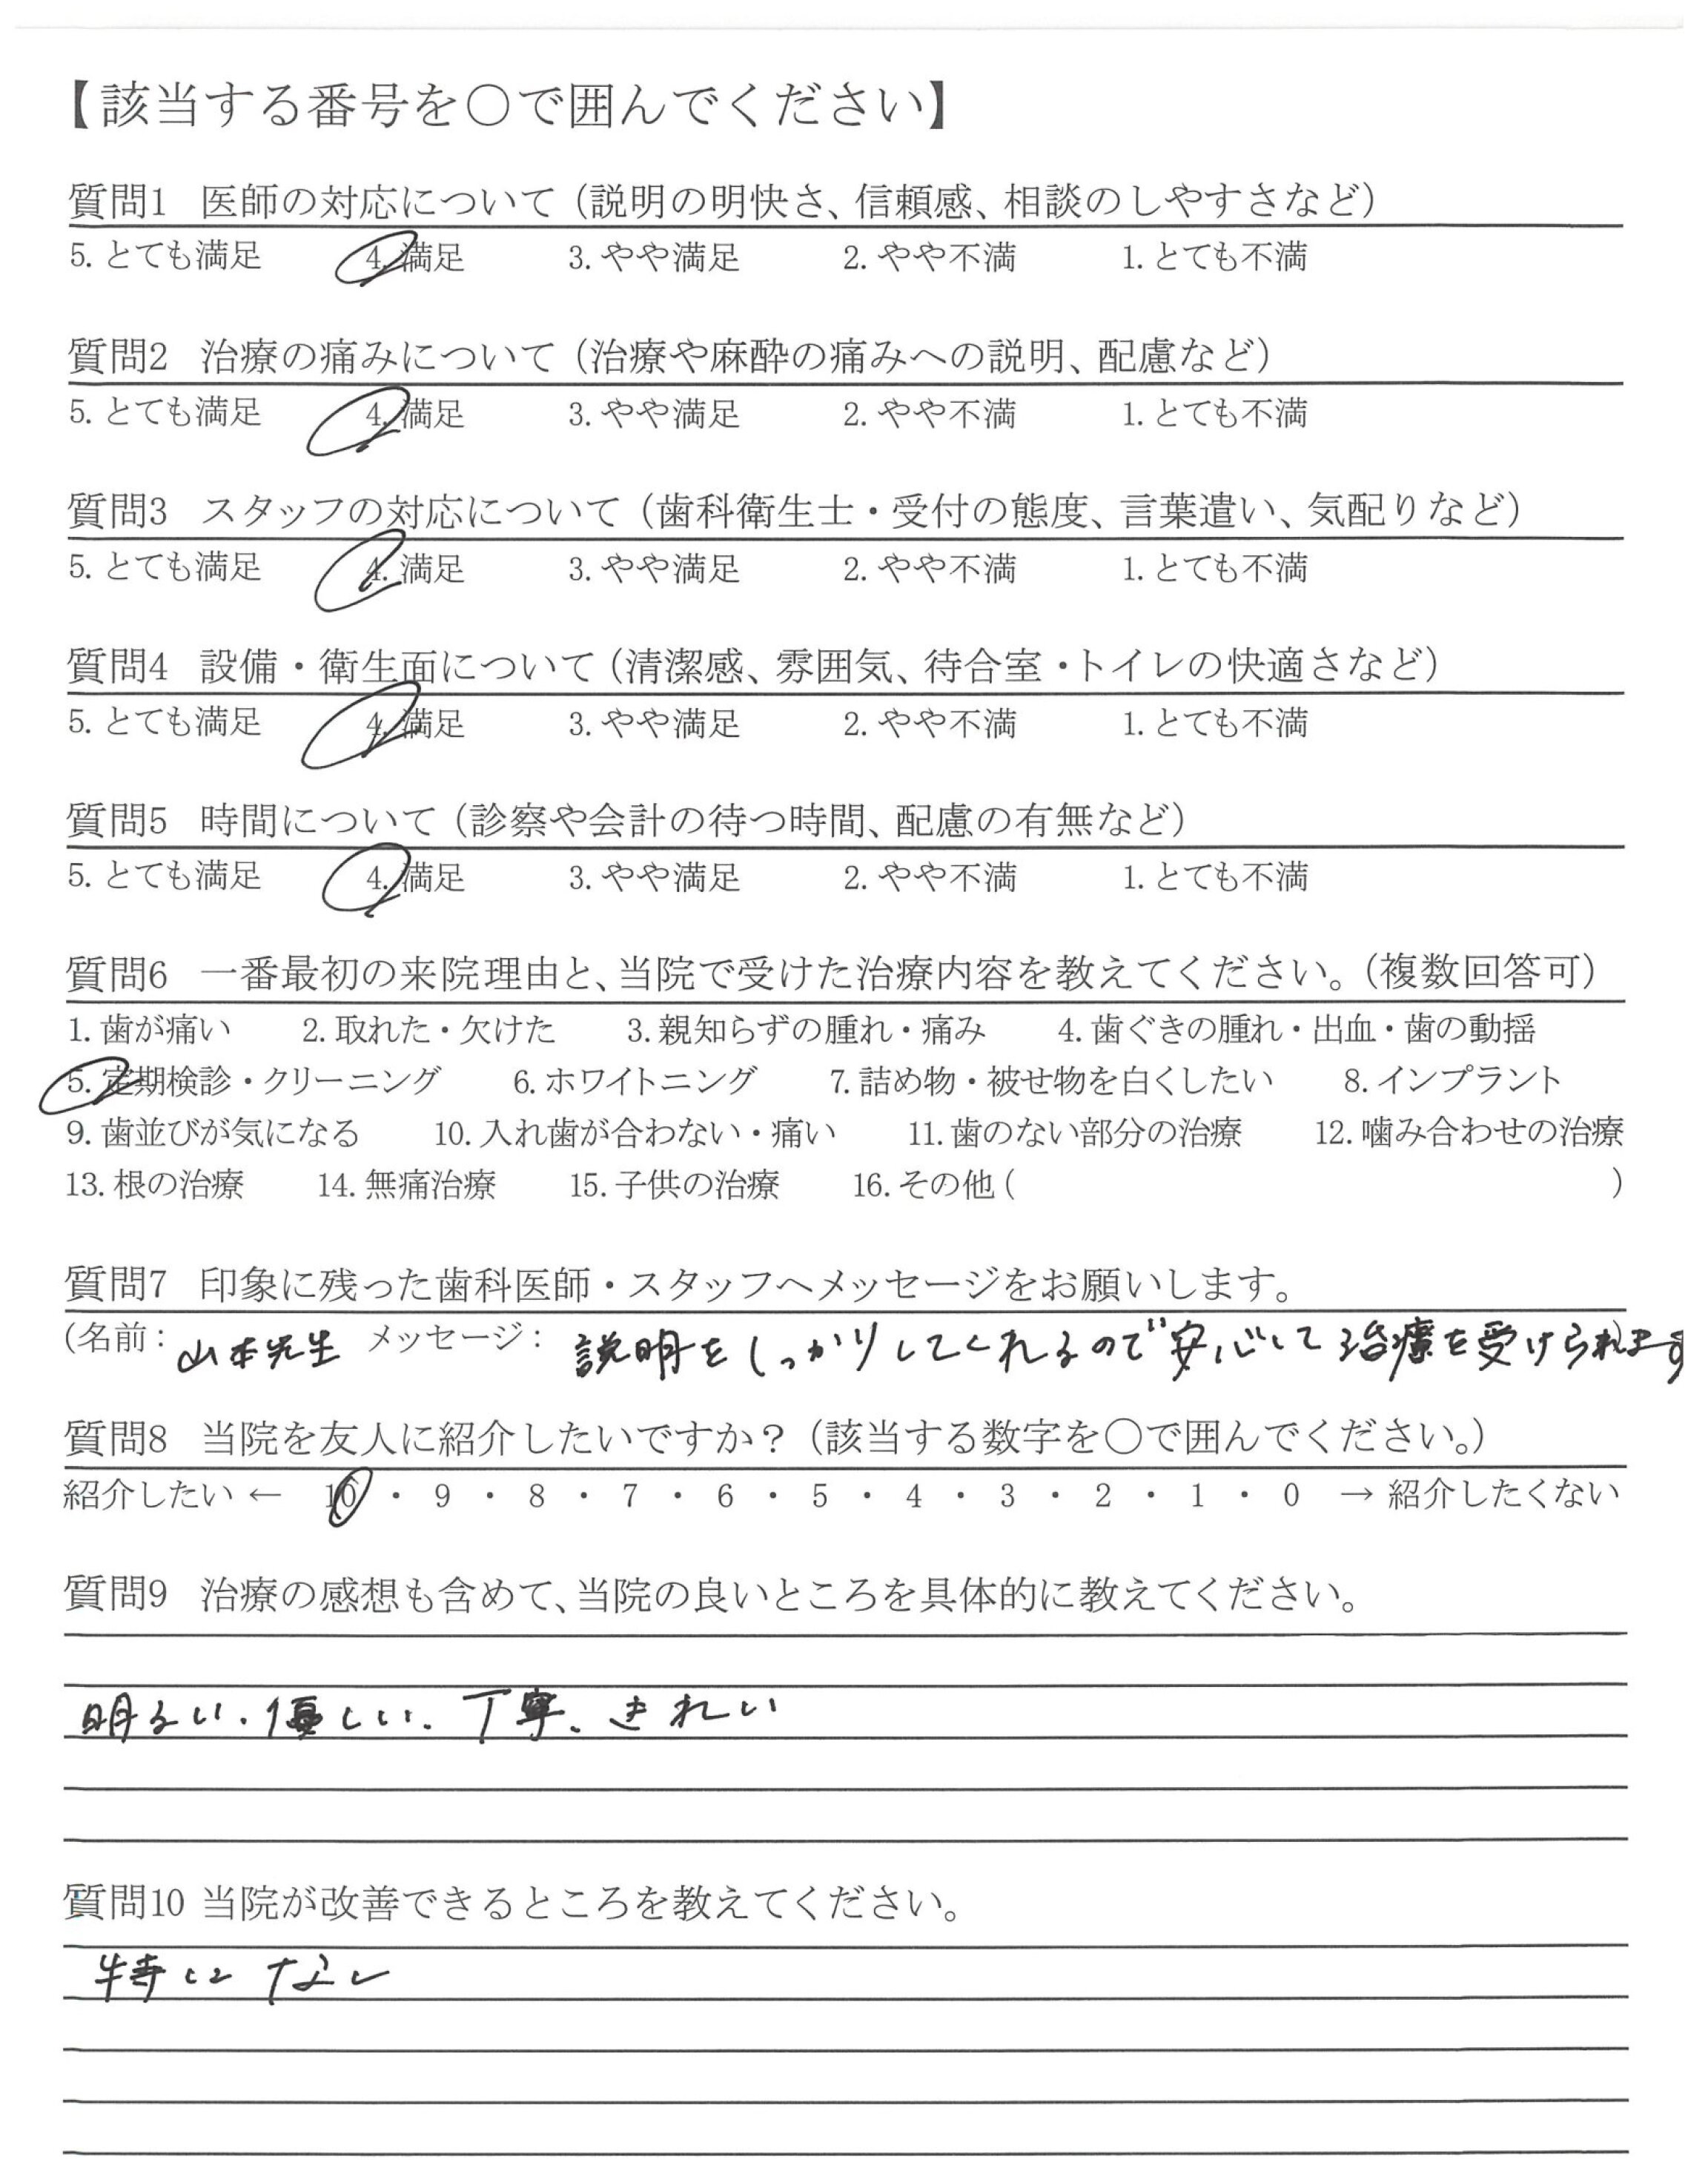 【該当する番号を○で囲んでください】
質問1 医師の対応について（説明の明快さ、信頼感、相談のしやすさなど）
5. とても満足 4. 満足 3. やや満足 2. やや不満 1. とても不満
質問2 治療の痛みについて（治療や麻酔の痛みへの説明、配慮など）
5. とても満足 4. 満足 3. やや満足 2. やや不満 1. とても不満
質問3 スタッフの対応について（歯科衛生士・受付の態度、言葉遣い、気配りなど）
5. とても満足 4. 満足 3. やや満足 2. やや不満 1. とても不満
質問4 設備・衛生面について（清潔感、雰囲気、待合室・トイレの快適さなど）
5. とても満足 4. 満足 3. やや満足 2. やや不満 1. とても不満
質問5 時間について（診察や会計の待つ時間、配慮の有無など）
5. とても満足 4. 満足 3. やや満足 2. やや不満 1. とても不満
質問6 一番最初の来院理由と、当院で受けた治療内容を教えてください。（複数回答可）
1. 歯が痛い 2. 取れた・欠けた 3. 親知らずの腫れ・痛み 4. 歯ぐきの腫れ・出血・歯の動揺
5. 定期検診・クリーニング 6. ホワイトニング 7. 詰め物・被せ物を白くしたい 8. インプラント
9. 歯並びが気になる 10. 入れ歯が合わない・痛い 11. 歯のない部分の治療 12. 噛み合わせの治療
13. 根の治療 14. 無痛治療 15. 子供の治療 16. その他 ( )
質問7 印象に残った歯科医師・スタッフへメッセージをお願いします。
(名前： 山本先生 メッセージ： 説明をしっかりしてくれるので安心して治療を受けられます
質問8 当院を友人に紹介したいですか？（該当する数字を○で囲んでください。）
紹介したい ← 10 ・ 9 ・ 8 ・ 7 ・ 6 ・ 5 ・ 4 ・ 3 ・ 2 ・ 1 ・ 0 → 紹介したくない
質問9 治療の感想も含めて、当院の良いところを具体的に教えてください。
明るい、優しい、丁寧、きれい
質問10 当院が改善できるところを教えてください。
特になし